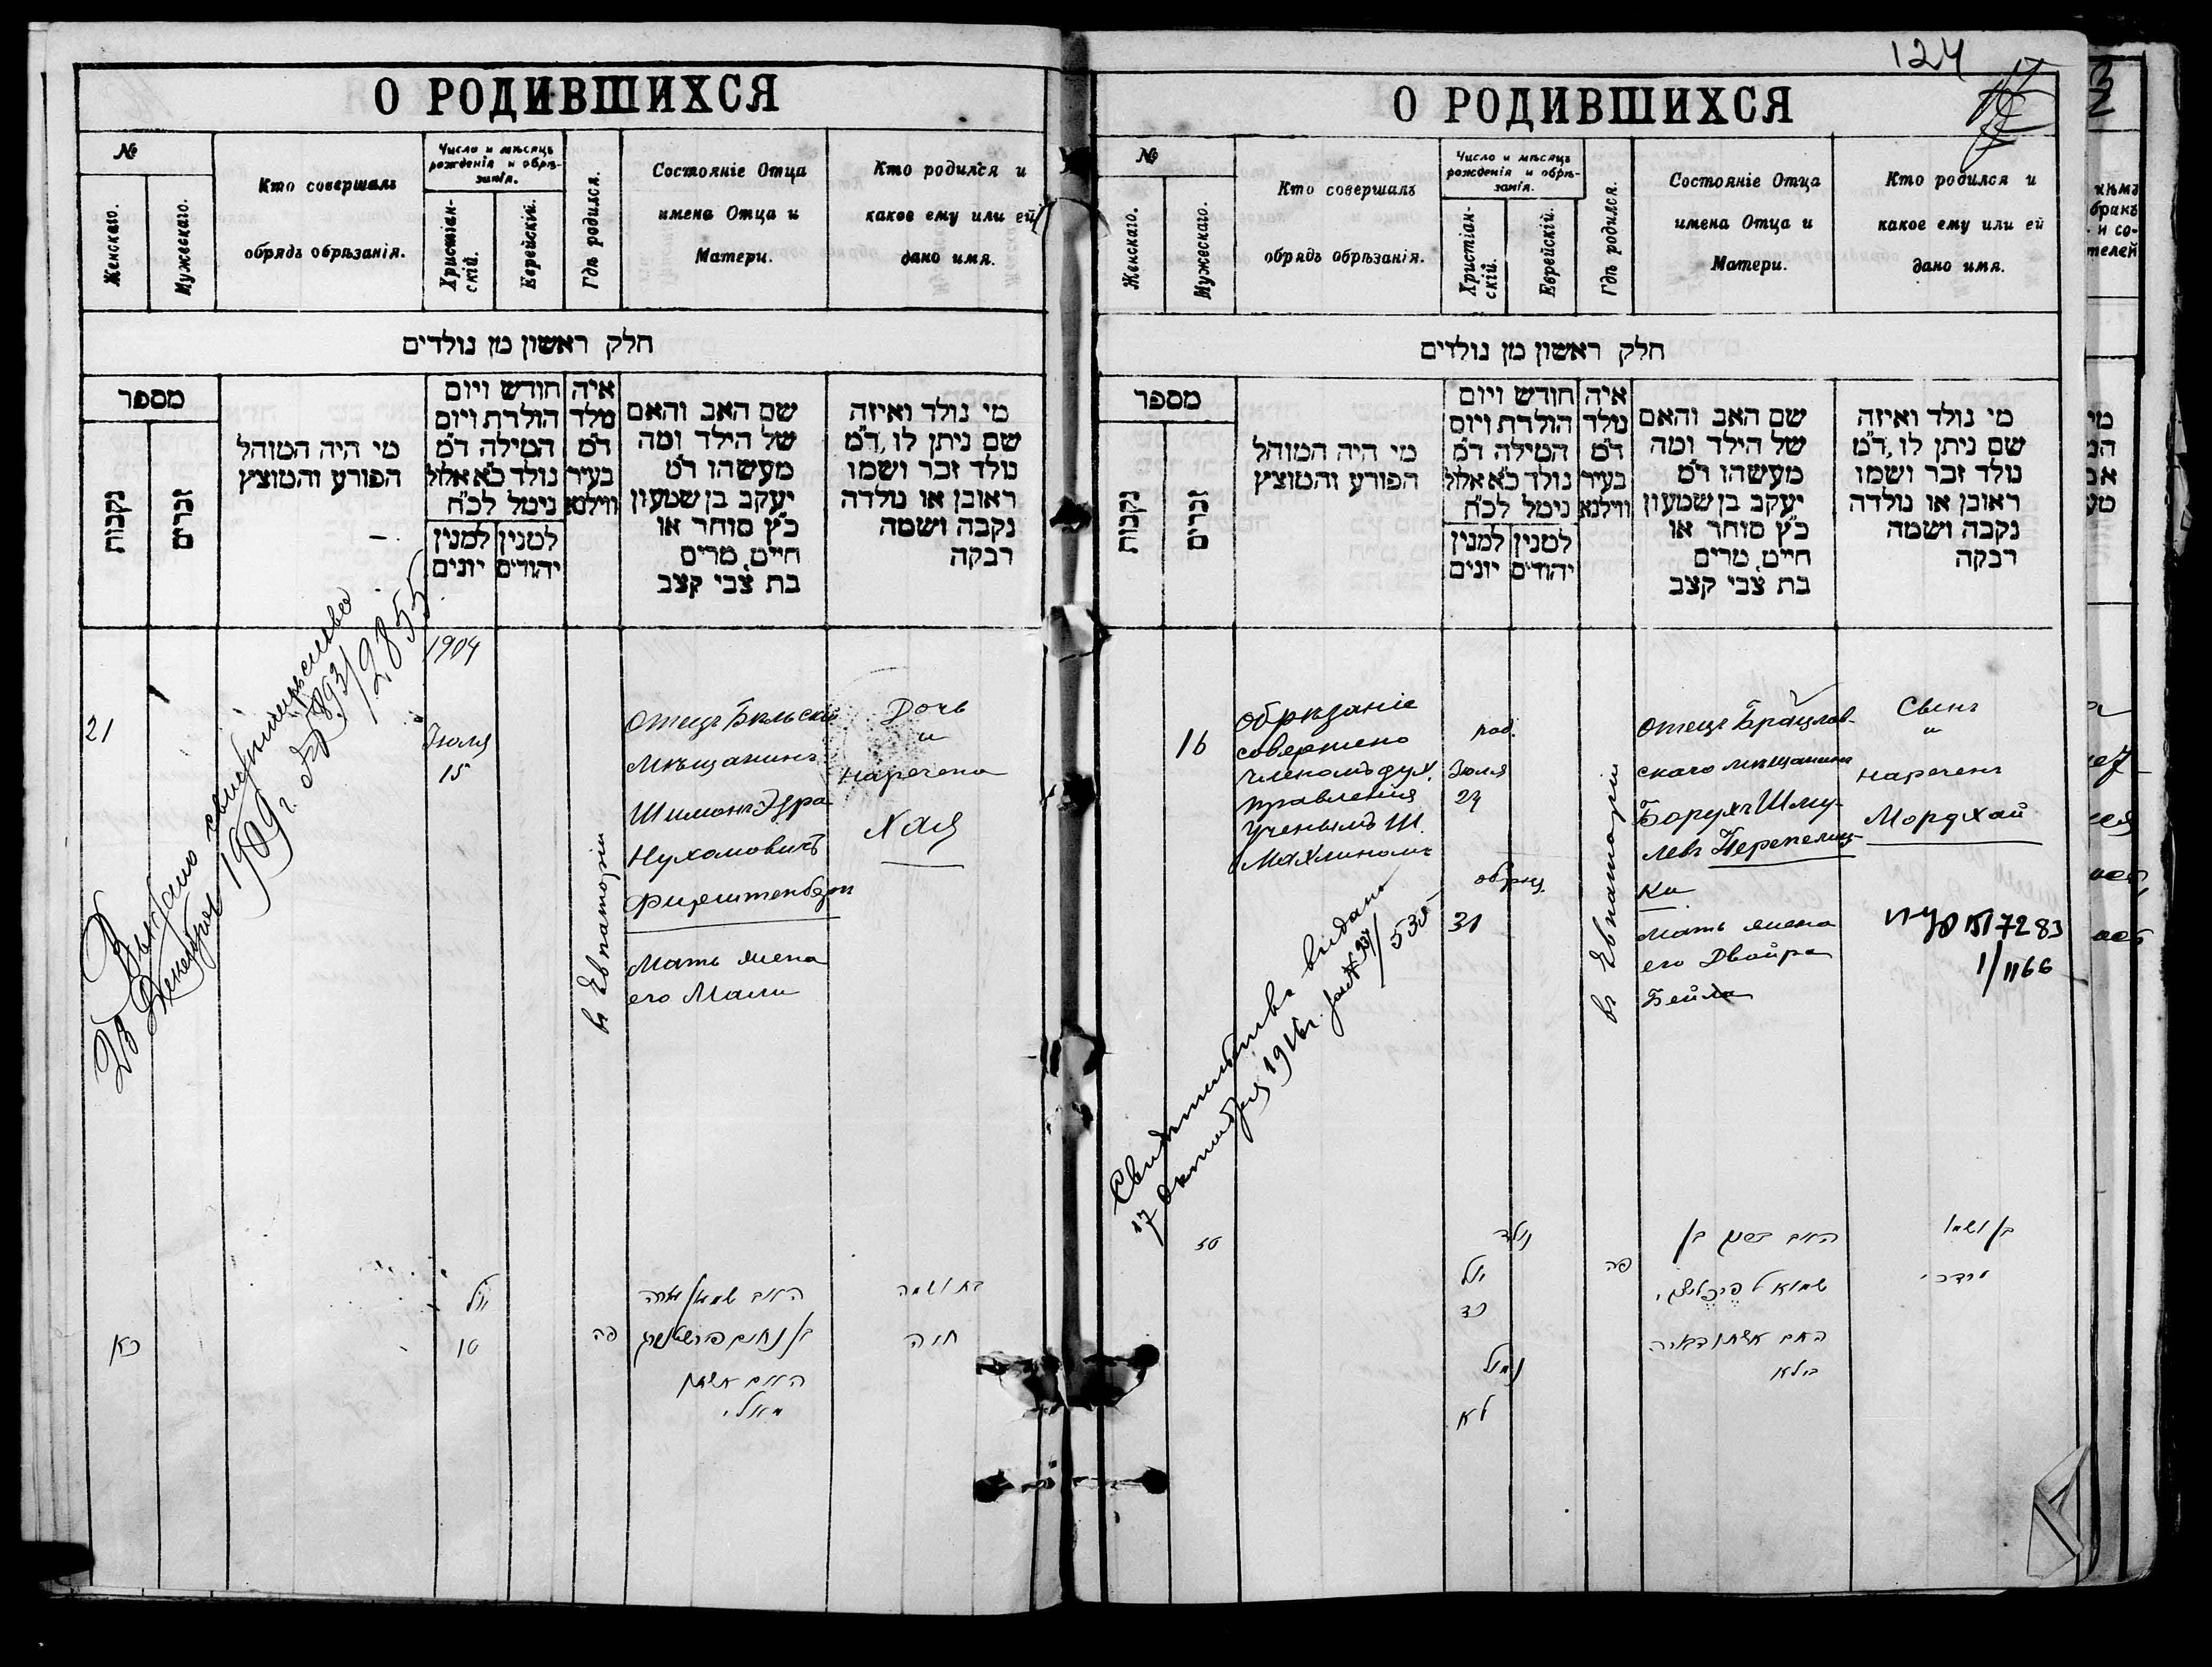 О РОДИВШИХСЯ
№
Женскаго.
Мужескаго.
Кто совершалъ
обрядъ обрѣзанія.
Число и мѣсяцъ
рожденія и обрѣ-
занія.
Христіан-
скій.
Еврейскій.
Гдѣ родился.
Состояніе Отца
имена Отца и
Матери.
Кто родился и
какое ему или ей
дано имя.
חלק ראשון מן נולדים
מספר
נקבות
זכרים
מי היה המוהל
הפורע והמוצץ
חודש ויום
הולדת ויום
המילה ד״מ
נולד כ״א אלול
נימל לכ״ח
למנין
יונים
למנין
יהודים
איה
נולד
ד״מ
בעיר
ווילנא
שם האב והאם
של הילד ומה
מעשהו ד״מ
יעקב בן שמעון
כ״ץ סוחר או
חייט, מרים
בת צבי קצב
מי נולד ואיזה
שם ניתן לו, ד״מ
נולד זכר ושמו
ראובן או נולדה
נקבה ושמה
רבקה
1904
21
Июля
15
въ Евпаторіи
Отецъ Бѣльскій
Мѣщанинъ
Шимонъ Эзра
Нухамовичъ
Фирштенберг
Мать жена
его Мали
Дочь
и
наречена
Хая
Выдано свидѣтельство
28 Декабря 1909 г.
כא
יולי
פה
חיה
124
О РОДИВШИХСЯ
№
Женскаго.
Мужескаго.
Кто совершалъ
обрядъ обрѣзанія.
Число и мѣсяцъ
рожденія и обрѣ-
занія.
Христіан-
скій.
Еврейскій.
Гдѣ родился.
Состояніе Отца
имена Отца и
Матери.
Кто родился и
какое ему или ей
дано имя.
חלק ראשון מן נולדים
מספר
נקבות
זכרים
מי היה המוהל
הפורע והמוצץ
חודש ויום
הולדת ויום
המילה ד״מ
נולד כ״א אלול
נימל לכ״ח
למנין
יונים
למנין
יהודים
איה
נולד
ד״מ
בעיר
ווילנא
שם האב והאם
של הילד ומה
מעשהו ד״מ
יעקב בן שמעון
כ״ץ סוחר או
חייט, מרים
בת צבי קצב
מי נולד ואיזה
שם ניתן לו, ד״מ
נולד זכר ושמו
ראובן או נולדה
נקבה ושמה
רבקה
16
Обрѣзаніе
совершено
членомъ дух.
правленія
Ученымъ Ш.
Махлиномъ
род.
Июля
24
обрѣз.
31
въ Евпаторіи
Отецъ Брацлав-
скаго мѣщанин
Борухъ Шму-
левъ Перепелиц-
ки
Мать жена
его Двойра
Бейла
Сынъ
и
нареченъ
Мордхай
7283
1/1166
Свидѣтельство выдано
17 Октября 1916 г.
נולד
יולי
כד
נימול
לא
פה
האב ברוך בן
האם אשתו דבורה
ביילא
בן ושמו
מרדכי